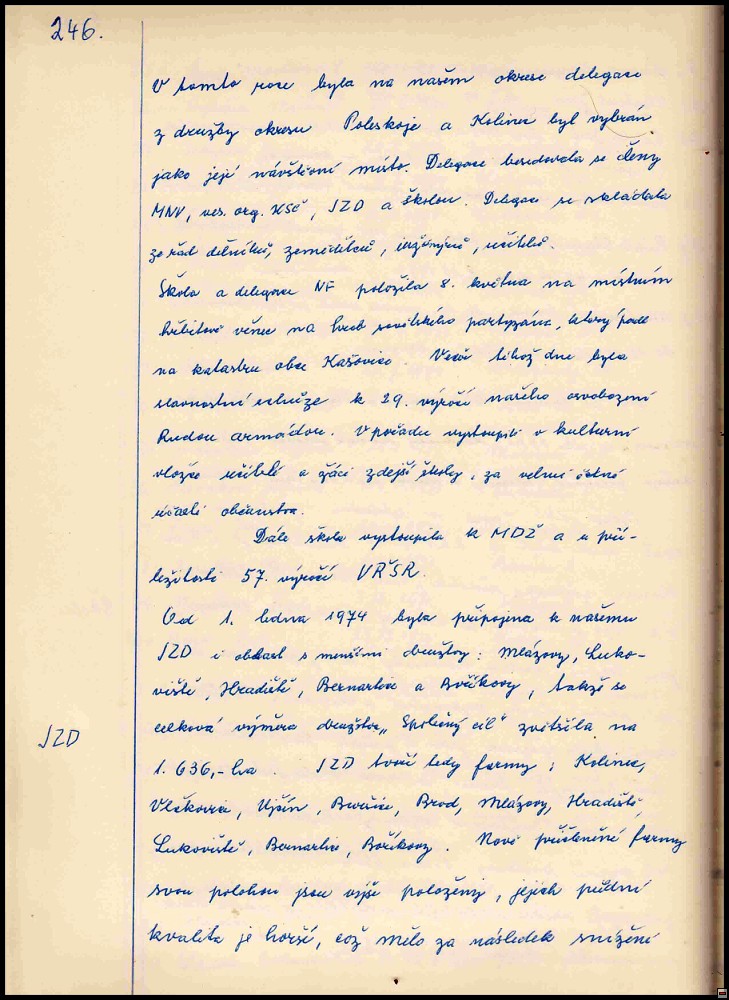 246.
V tomto roce byla na našem okrese delegace
z družby okresu Poleskoje a Kolinec byl vybrán
jako její návštěvní místo. Delegace besedovala se členy
MNV, ves. org. KSČ, JZD a školou. Delegace se skládala
ze řad dělníků, zemědělců, inženýrů, učitelů.
Škola a delegace NF položila 8. května na místním
hřbitově věnec na hrob sovětského partyzána, který padl
na katastru obce Kašovice. Večer téhož dne byla
slavnostní schůze k 29. výročí našeho osvobození
Rudou armádou. V pořadu vystoupili v kulturní
vložce učitelé a žáci zdejší školy, za velmi četné
účasti občanstva.
Dále škola vystoupila k MDŽ a u pří-
ležitosti 57. výročí VŘSR.
Od 1. ledna 1974 byla připojena k našemu
JZD i oblast s menšími družstvy: Mlázovy, Luko-
viště, Hradiště, Bernartice a Bořikovy, takže se
celková výměra družstva „Společný cíl" zvětšila na
JZD
1.636,- ha. JZD tvoří tedy farmy: Kolinec,
Vlčkovice, Ujčín, Buršice, Brod, Mlázovy, Hradiště,
Lukoviště, Bernartice, Bořikovy. Nově přičleněné farmy
svou polohou jsou výše položeny, jejich půdní
kvalita je horší, což mělo za následek snížení